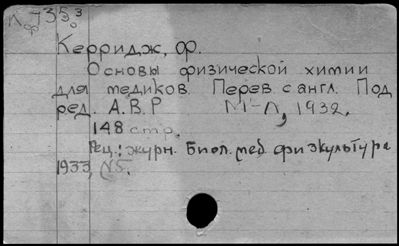 Керридж, Ф.
Основы физической химии
для медиков. Перев с англ. Под
ред. А.В.Р М-Л, 1932.
148 стр.
Рец.: журн. Биол. мед. физкультура
1933, N5.